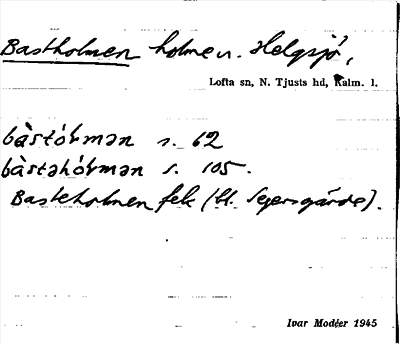 Bastholmen holme v. Helgsjö,
Lofta sn, N. Tjusts hd, Kalm. l.
bàstòɫmən s. 62
bàstəhóɫmən s. 105.
Basteholmen fek (bl. Segersgärde).
Ivar Modéer 1945